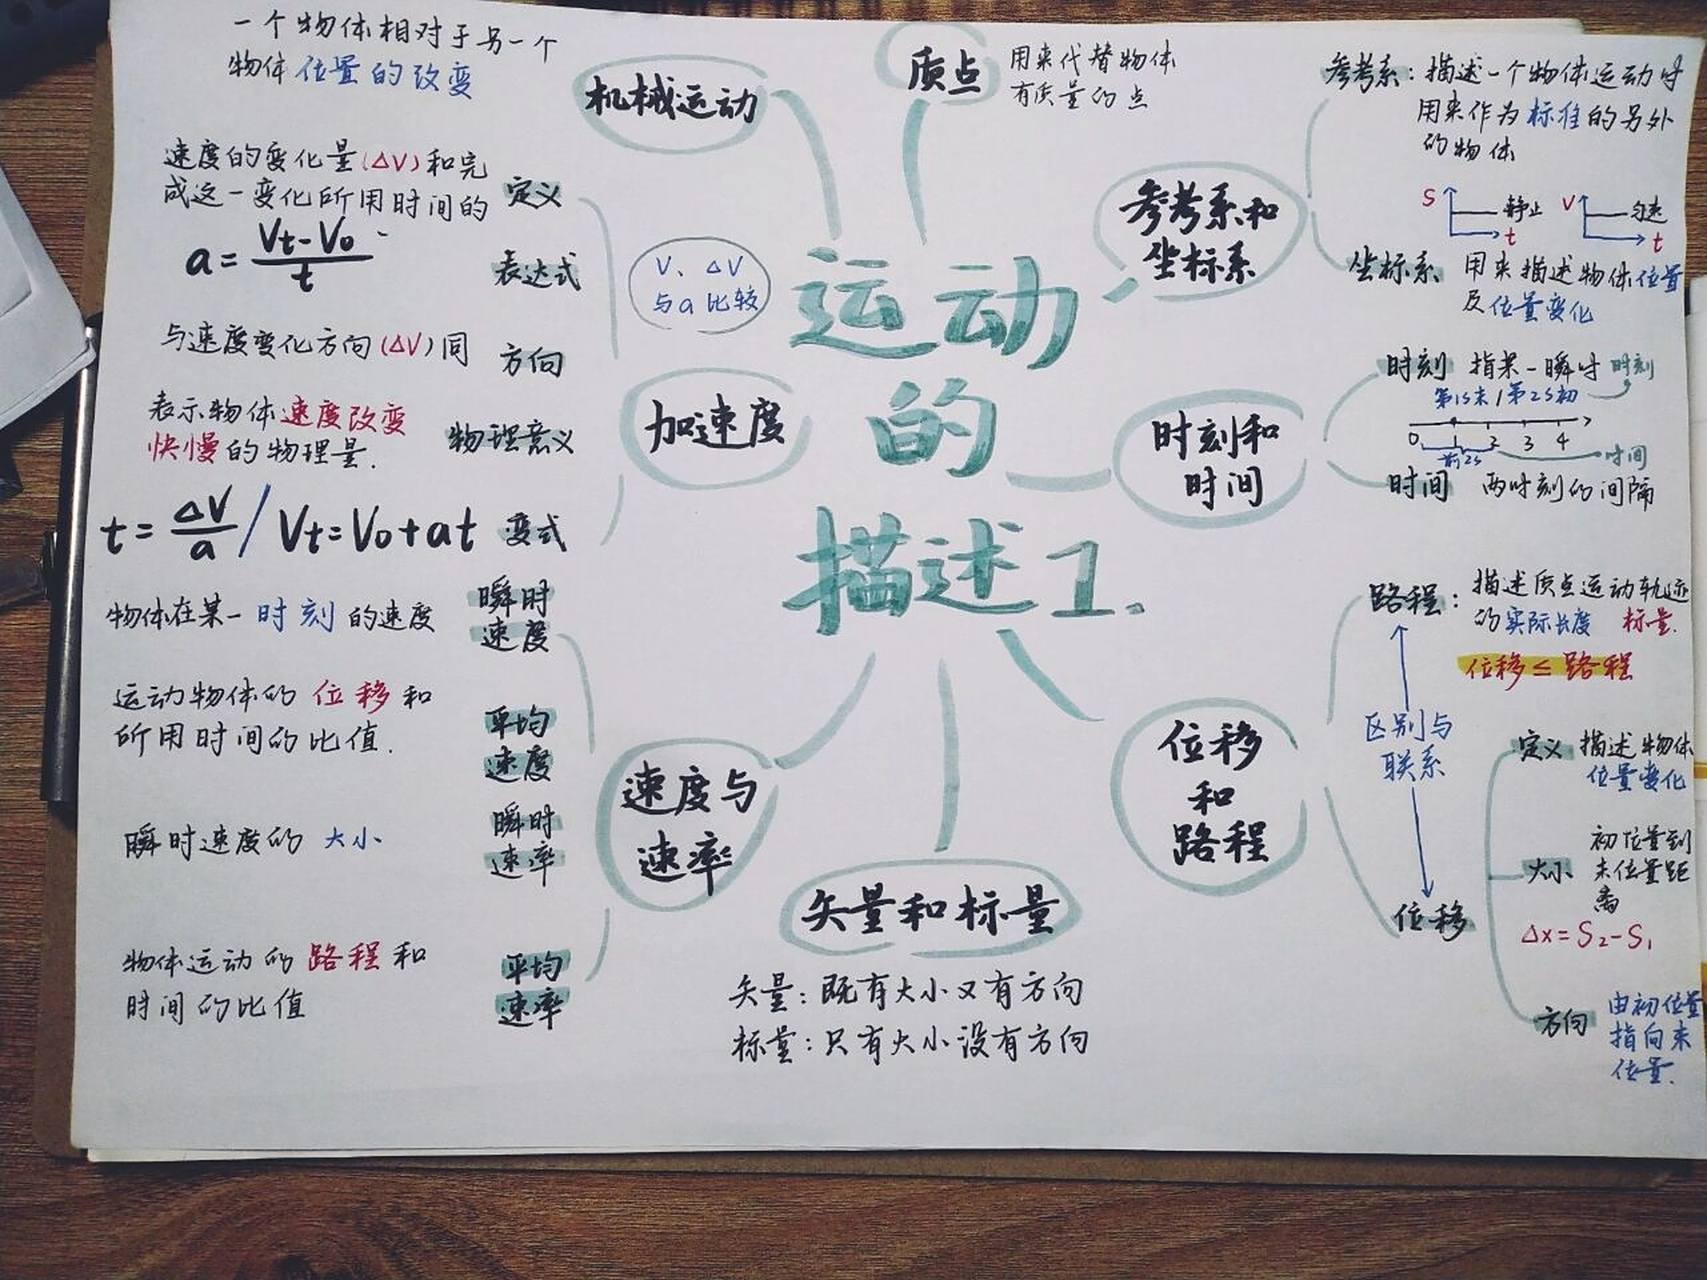 运动
的
描述1.
机械运动
一个物体相对于另一个
物体位置的改变
质点
用来代替物体
有质量的点
参考系和
坐标系
参考系：描述一个物体运动时
用来作为标准的另外
的物体
S 静止 t
V 匀速 t
坐标系 用来描述物体位置
及位置变化
时刻和
时间
时刻 指某一瞬时 时刻
第1s末/第2s初
0 1 2 3 4
前2s 时间
时间 两时刻的间隔
位移
和
路程
路程：描述质点运动轨迹
的实际长度 标量.
位移≤路程
区别与
联系
位移
定义 描述物体
位置变化
大小 初位置到
末位置距
离
Δx=S₂-S₁
方向 由初位置
指向末
位置.
矢量和标量
矢量：既有大小又有方向
标量：只有大小没有方向
速度与
速率
瞬时
速度
物体在某一时刻的速度
平均
速度
运动物体的位移和
所用时间的比值.
瞬时
速率
瞬时速度的大小
平均
速率
物体运动的路程和
时间的比值
加速度
V、ΔV
与a比较
定义
速度的变化量(ΔV)和完
成这一变化所用时间的
表达式
a=(Vt-V₀)/t
方向
与速度变化方向(ΔV)同
物理意义
表示物体速度改变
快慢的物理量.
变式
t=ΔV/a / Vt=V₀+at